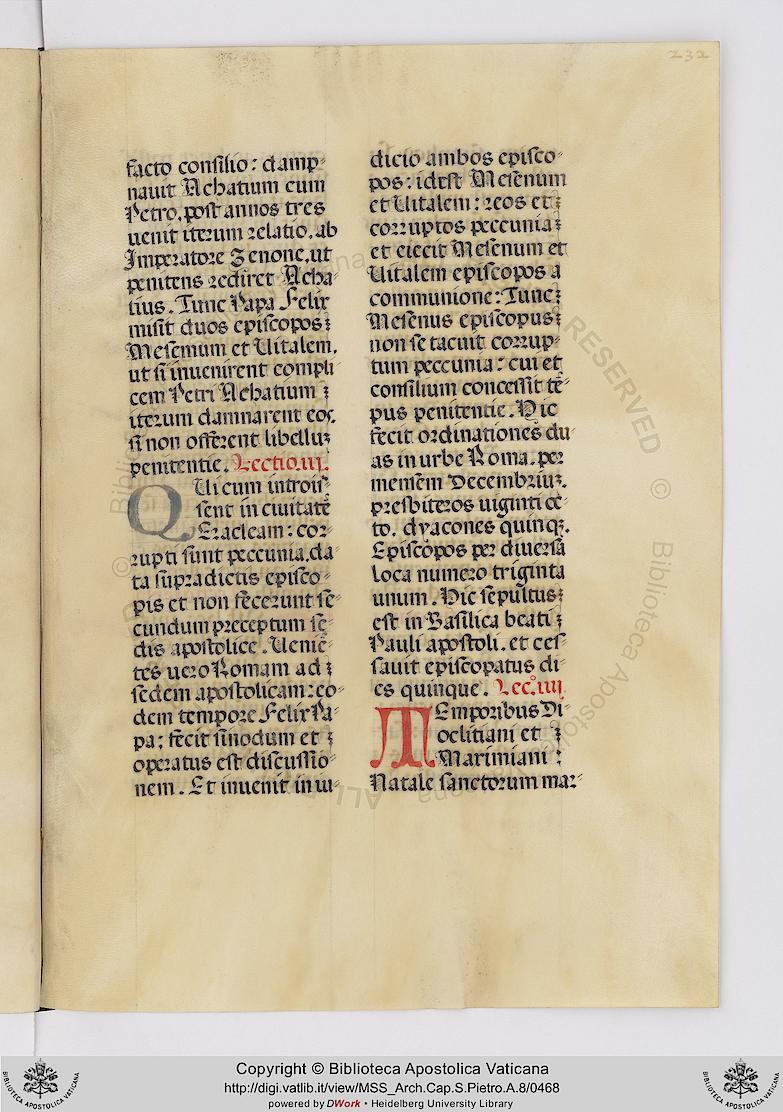 232
facto consilio: damp-
nauit Achatium cum
Petro, post annos tres
uenit iterum relatio, ab
Imperatore Zenone, ut
penitens rediret Acha-
tius. Tunc Papa Felix
misit duos episcopos:
Mesemum et Uitalem,
ut si inuenirent compli-
cem Petri Achatium
iterum damnarent eos,
si non offerent libelluz
penitentie. Lectio .iii.
QUicum introis-
sent in ciuitatē
Eracleam: cor-
rupti sunt peccunia, da-
ta supradictis episco-
pis et non fecerunt se-
cundum preceptum se-
dis apostolice. Ueniē-
tes uero Romam ad
sedem apostolicam: eo-
dem tempore Felix Pa-
pa: fecit sinodum et
operatus est discussio-
nem. Et inuenit in iu-
dicio ambos episco-
pos: idest Mesenum
et Uitalem: reos et
corruptos peccunia:
et eiecit Mesenum et
Uitalem episcopos a
communione: Tunc
Mesenus episcopus
non se tacuit corrup-
tum peccunia: cui et
consilium concessit tē-
pus penitentie. Hic
fecit ordinationes du-
as in urbe Roma, per
mensem Decembriuz,
presbiteros uiginti oc-
to, dyacones quinqꝫ.
Episcopos per diuersa
loca numero triginta
unum. Hic sepultus
est in Basilica beati
Pauli apostoli, et ces-
sauit episcopatus di-
es quinque. Lec.º iiii.
TEmporibus Di-
oclitiani et
Maximiani:
Natale sanctorum mar-
RESERVED
©
Biblioteca Aposto
Copyright © Biblioteca Apostolica Vaticana
http://digi.vatlib.it/view/MSS_Arch.Cap.S.Pietro.A.8/0468
powered by DWork • Heidelberg University Library
BIBLIOTECA APOSTOLICA VATICANA
BIBLIOTECA APOSTOLICA VATICANA